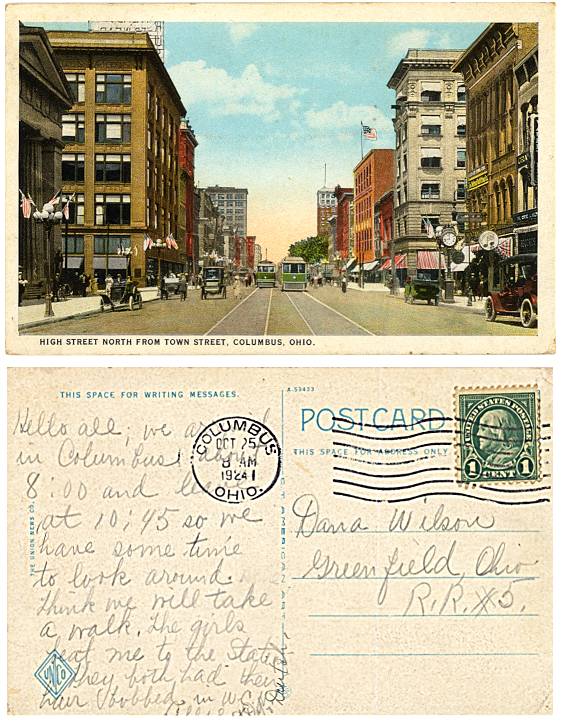 HIGH STREET NORTH FROM TOWN STREET, COLUMBUS, OHIO.
THIS SPACE FOR WRITING MESSAGES.
A-53433
POST CARD
THIS SPACE FOR ADDRESS ONLY
COLUMBUS
OCT 25
8 AM
1924
OHIO.
UNITED STATES POSTAGE
1 CENT 1
Hello all; we
in Columbus about
8:00 and
at 10:45 so we
have some time
to look around.
Think we will take
a walk. The girls
beat me to the State
they both had their
hair bobbed in W.C.H.
THE UNION NEWS CO.
UNCO
Dana Wilson
Greenfield, Ohio
R.R. #5.